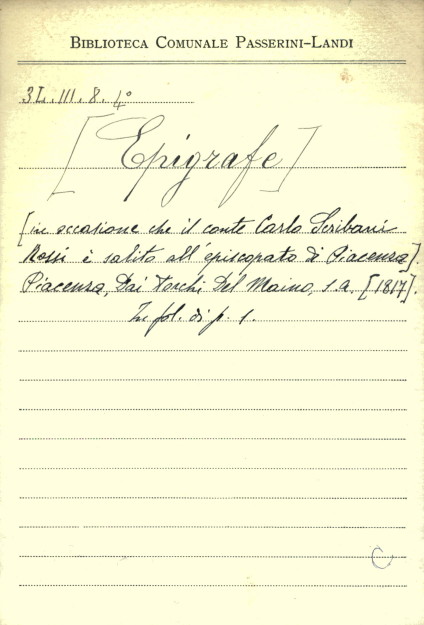 BIBLIOTECA COMUNALE PASSERINI-LANDI
3L.III.8.4°
[Epigrafe]
[in occasione che il conte Carlo Scribani
Rossi è salito all'episcopato di Piacenza].
Piacenza, Dai Torchi Del Maino, s.a. [1817].
In fol. di p. 1.
C